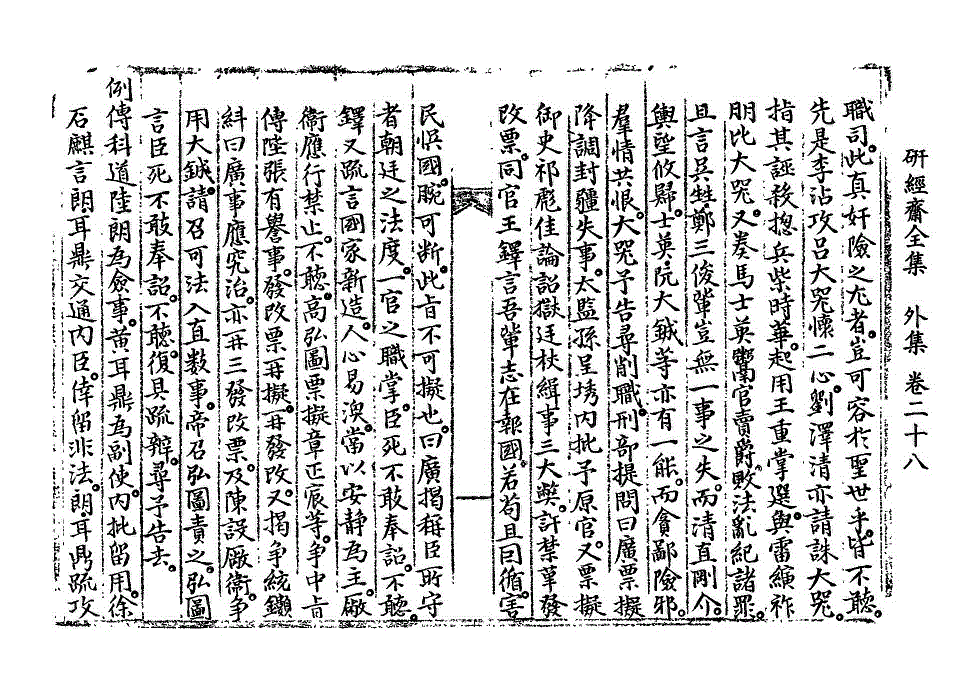 研經齋全集　外集　卷二十八
職司。此真奸險之尤者。豈可容於聖世乎。皆不聽。
先是李沾攻呂大器懷二心。劉澤清亦請誅大器。
指其誣殺摠兵柴時華。起用王重掌選。與雷縯祚
朋比大器。又奏馬士英鬻官賣爵。敗法亂紀諸罪。
且言吳甡鄭三俊輩豈無一事之失。而清直剛介。
輿望攸歸。士英阮大鋮等亦有一能。而貪鄙險邪。
羣情共恨。大器予告尋削職。刑部提問曰廣票擬
降調封疆失事。太監孫呈琇內批予原官。又票擬
御史祁彪佳論詔獄廷杖緝事三大獘。許禁革發
改票。同官王鐸言吾輩志在報國。若苟且因循。害
民悞國。腕可斷。此旨不可擬也。曰廣揭稱臣所守
者朝廷之法度。一官之職掌。臣死不敢奉詔。不聽。
鐸又疏言國家新造。人心易渙。當以安靜為主。廠
衛應行禁止。不聽。高弘圖票擬章正宸等。爭中旨
傳陞張有譽事。發改票再擬。再發改。又揭爭統鑨
糾曰廣事應究治。亦再三發改票。及陳設廠衛。爭
用大鋮。請召可法入直数事。帝召弘圖責之。弘圖
言臣死不敢奉詔。不聽。復具疏辨。尋予告去。
例傳科道陸朗為僉事。黃耳鼎為副使。內批留用。徐
石麒言朗耳鼎交通內臣。倖留非法。朗耳鼎疏攻